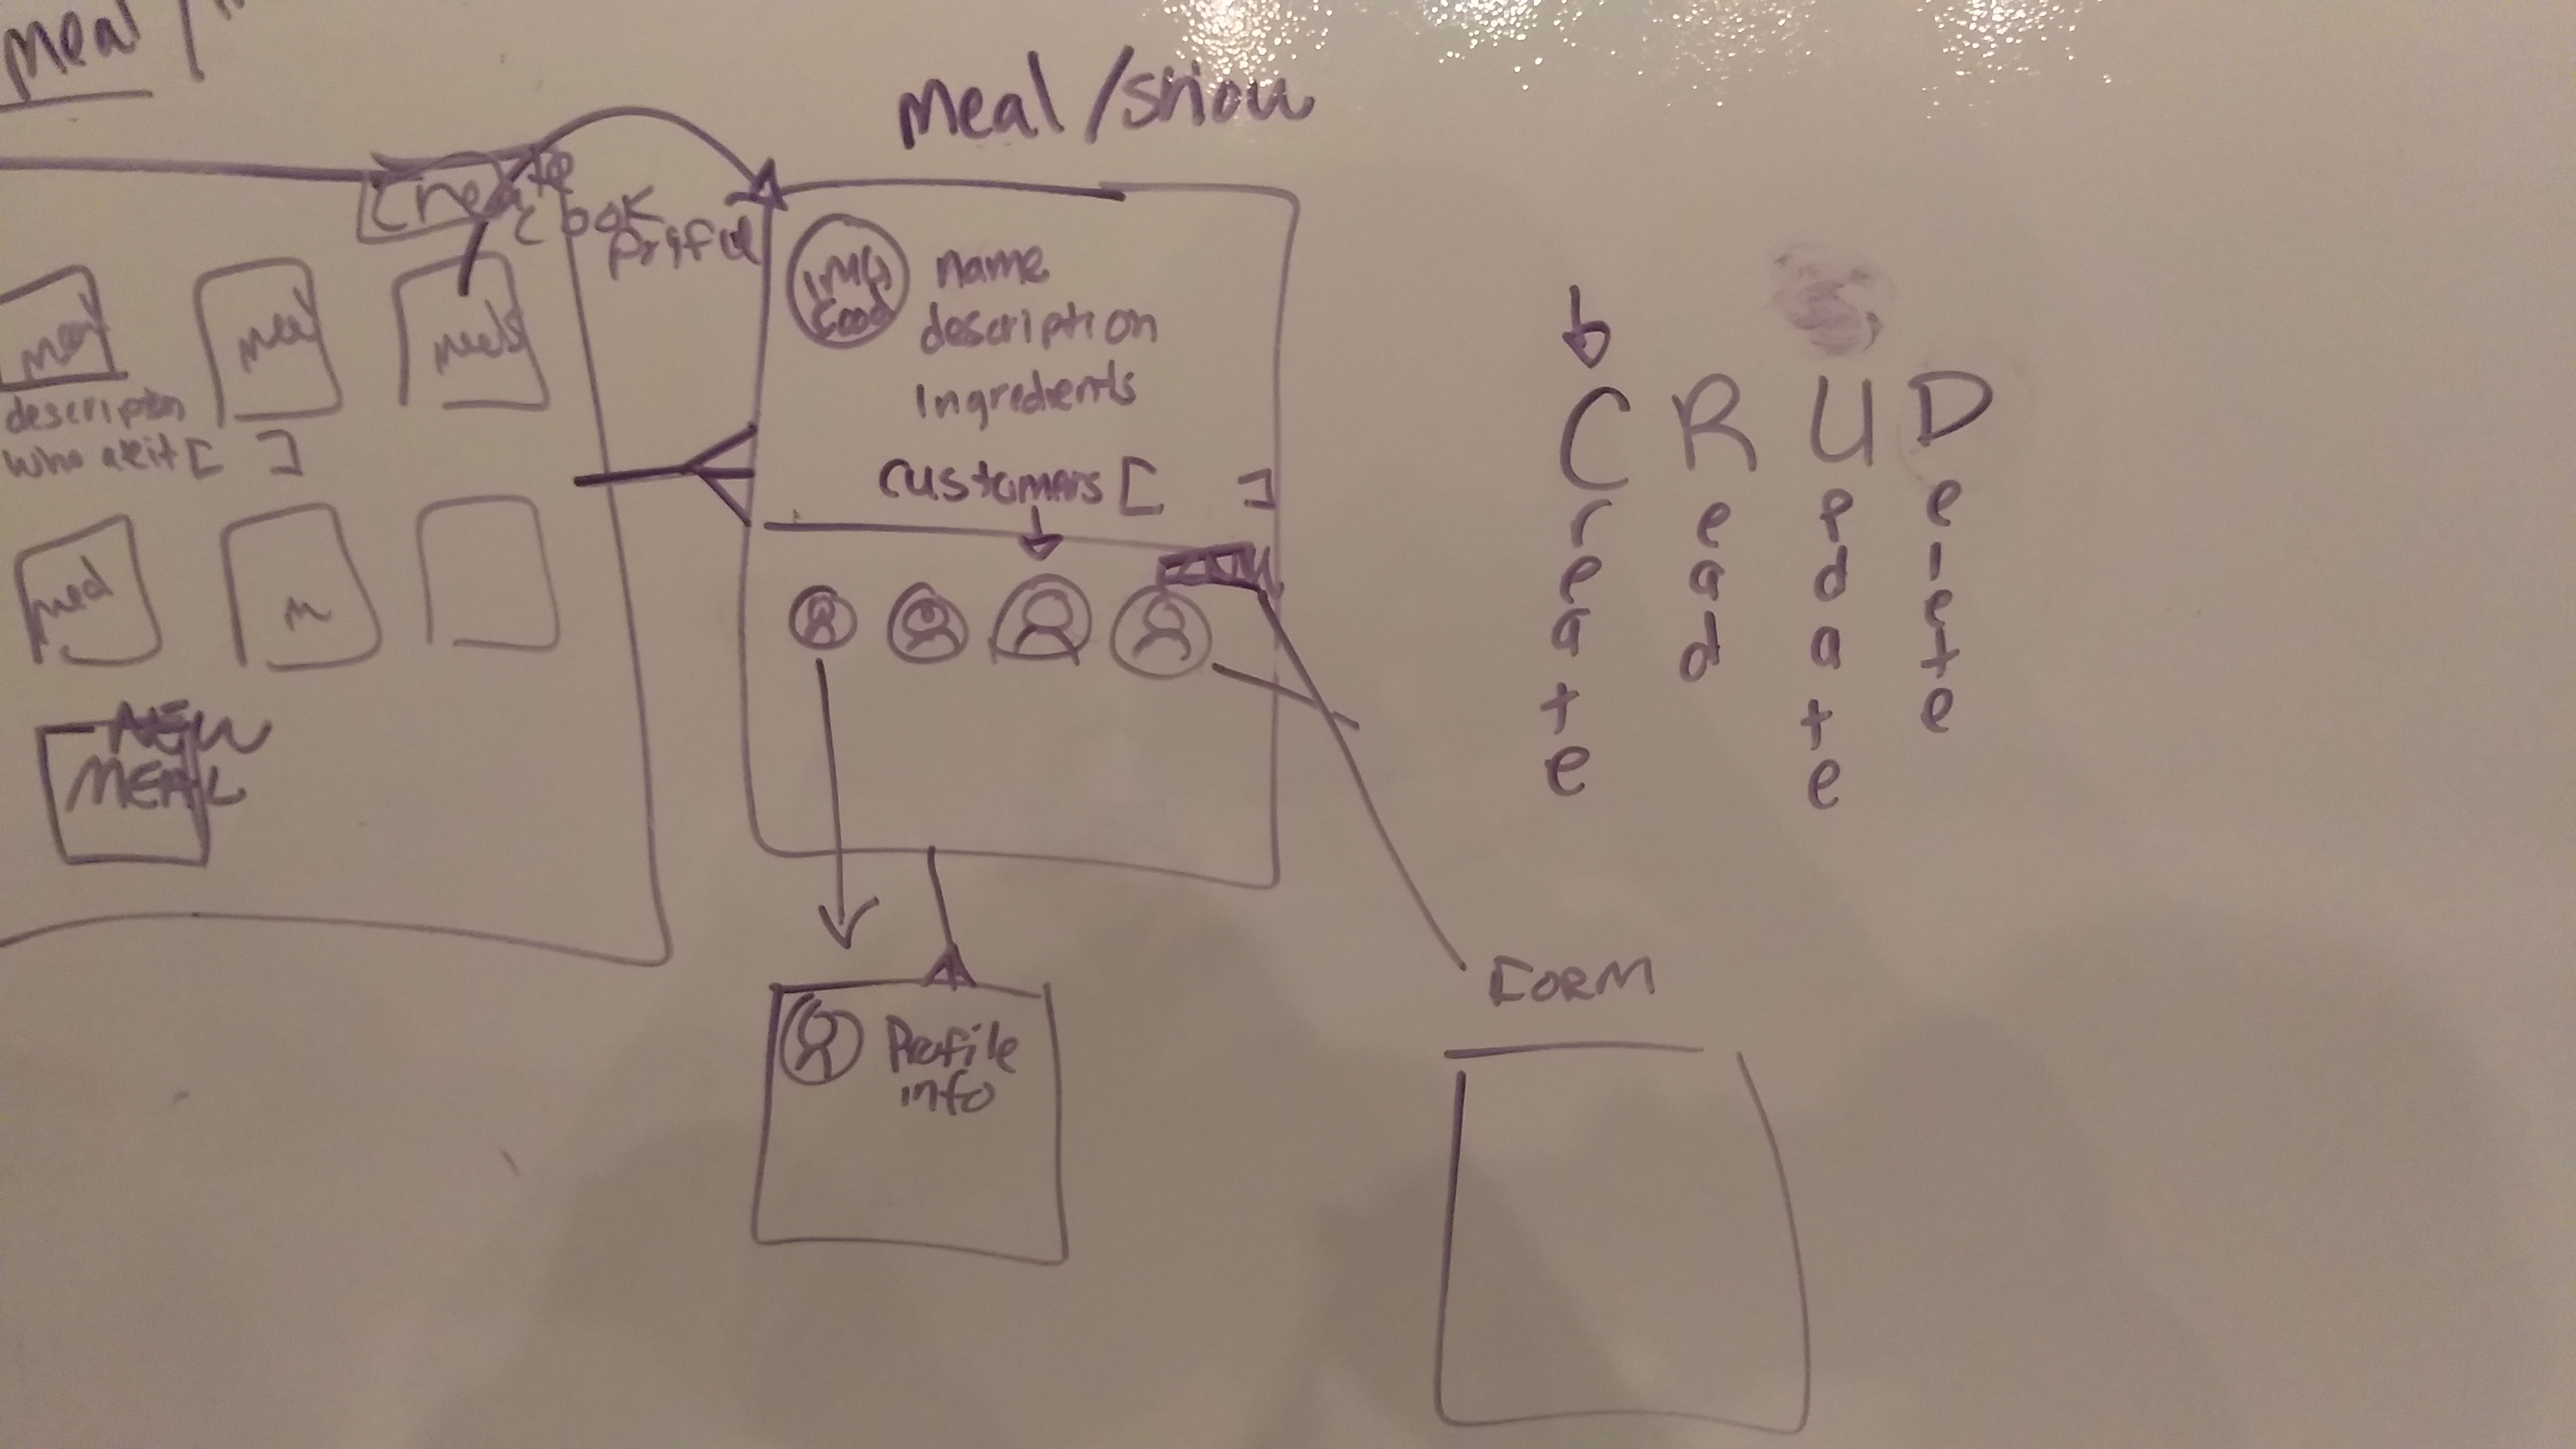 meal /
Create
cook
meal
meal
meals
description
who ate it [ ]
meal
m
NEW
MEAL
meal /show
IMG
food
name
description
Ingredients
customers [ ]
Profile
info
FORM
C R U D
Create
Read
Update
Delete